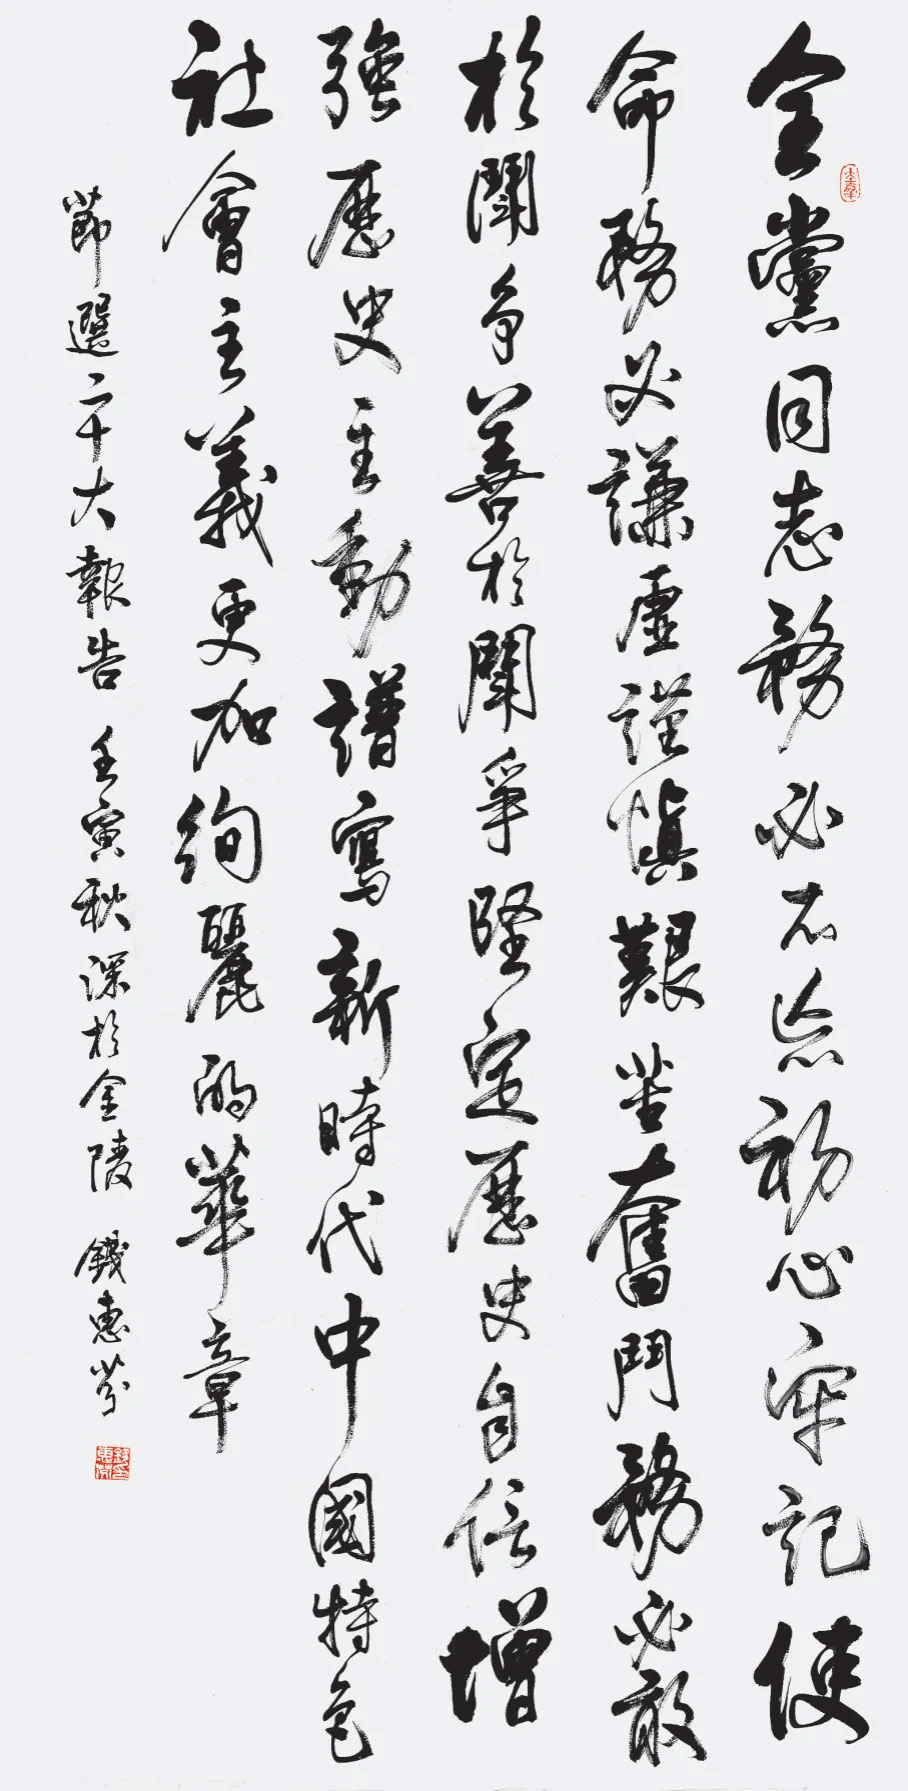 全黨同志務必不忘初心牢記使
命務必謙虛謹慎艱苦奮鬥務必敢
於鬭爭善於鬭爭堅定歷史自信增
強歷史主動譜寫新時代中國特色
社會主義更加絢麗的華章
節選二十大報告 壬寅秋深於金陵 錢惠芬